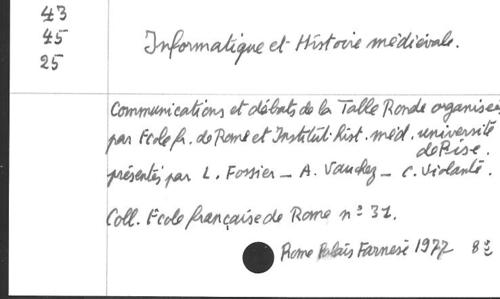 43
45
25
Informatique et Histoire médiévale.
Communications et débats de la Talle Ronde organisées
par Ecole fr. de Rome et Institut. hist. méd. université
de Pise.
présentés par L. Fossier _ A. Vauchez _ C. Violante.
Coll. Ecole française de Rome nº 31.
Rome Palais Farnese 1977 8º